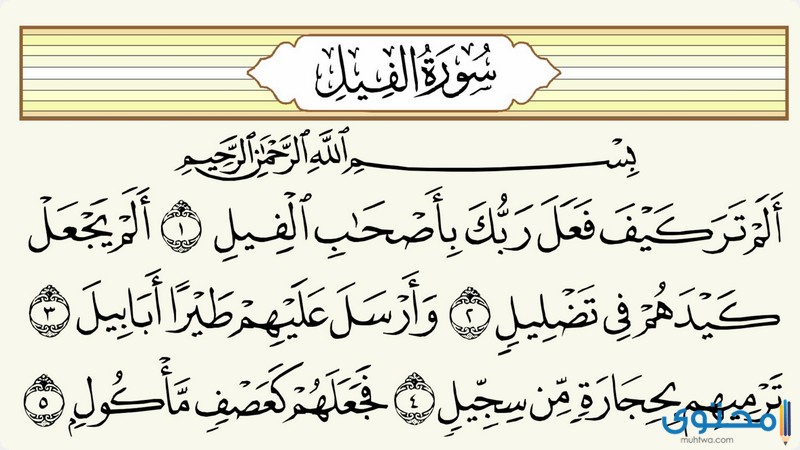 سُورَةُ الفِيلِ
بِسْمِ اللَّهِ الرَّحْمَٰنِ الرَّحِيمِ
أَلَمْ تَرَ كَيْفَ فَعَلَ رَبُّكَ بِأَصْحَابِ الْفِيلِ ١ أَلَمْ يَجْعَلْ
كَيْدَهُمْ فِي تَضْلِيلٍ ٢ وَأَرْسَلَ عَلَيْهِمْ طَيْرًا أَبَابِيلَ ٣
تَرْمِيهِم بِحِجَارَةٍ مِّن سِجِّيلٍ ٤ فَجَعَلَهُمْ كَعَصْفٍ مَّأْكُولٍ ٥
محتوى
muhtwa.com